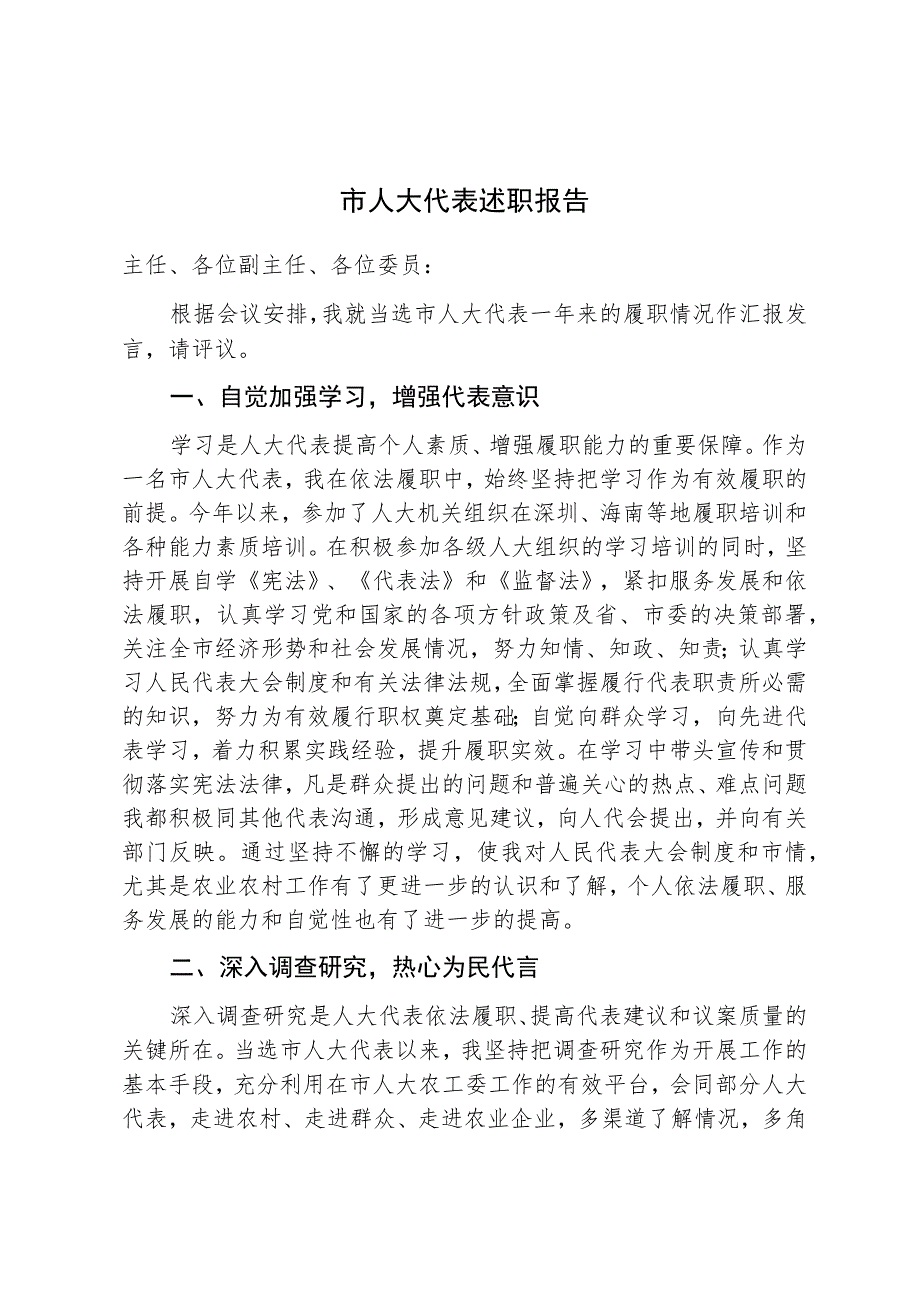 市人大代表述职报告
主任、各位副主任、各位委员：
根据会议安排，我就当选市人大代表一年来的履职情况作汇报发
言，请评议。
一、自觉加强学习，增强代表意识
学习是人大代表提高个人素质、增强履职能力的重要保障。作为
一名市人大代表，我在依法履职中，始终坚持把学习作为有效履职的
前提。今年以来，参加了人大机关组织在深圳、海南等地履职培训和
各种能力素质培训。在积极参加各级人大组织的学习培训的同时，坚
持开展自学《宪法》、《代表法》和《监督法》，紧扣服务发展和依
法履职，认真学习党和国家的各项方针政策及省、市委的决策部署，
关注全市经济形势和社会发展情况，努力知情、知政、知责；认真学
习人民代表大会制度和有关法律法规，全面掌握履行代表职责所必需
的知识，努力为有效履行职权奠定基础；自觉向群众学习，向先进代
表学习，着力积累实践经验，提升履职实效。在学习中带头宣传和贯
彻落实宪法法律，凡是群众提出的问题和普遍关心的热点、难点问题
我都积极同其他代表沟通，形成意见建议，向人代会提出，并向有关
部门反映。通过坚持不懈的学习，使我对人民代表大会制度和市情，
尤其是农业农村工作有了更进一步的认识和了解，个人依法履职、服
务发展的能力和自觉性也有了进一步的提高。
二、深入调查研究，热心为民代言
深入调查研究是人大代表依法履职、提高代表建议和议案质量的
关键所在。当选市人大代表以来，我坚持把调查研究作为开展工作的
基本手段，充分利用在市人大农工委工作的有效平台，会同部分人大
代表，走进农村、走进群众、走进农业企业，多渠道了解情况，多角